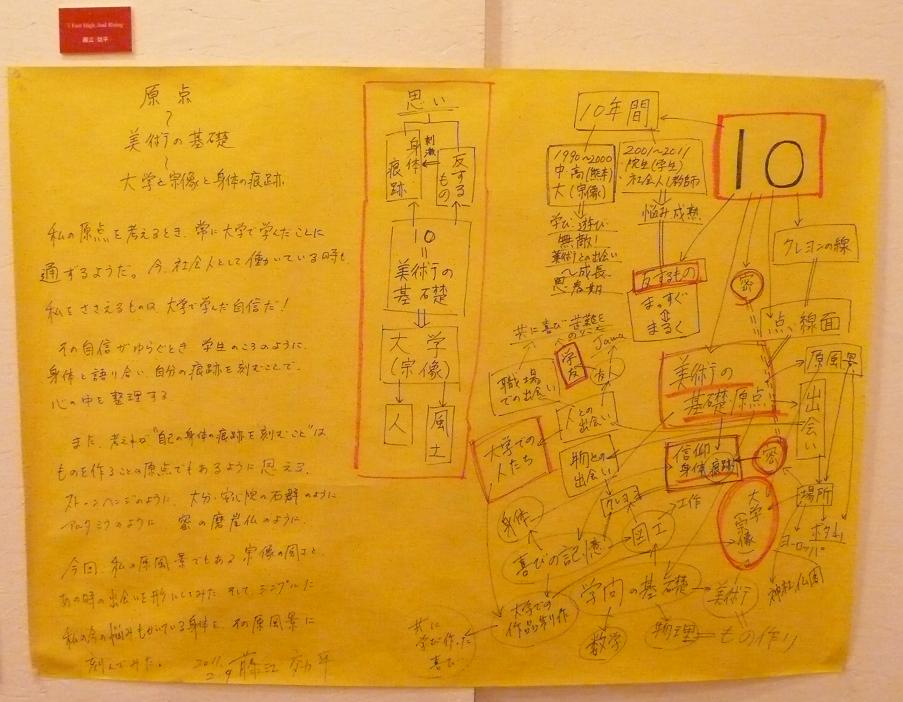 原点
〜
美術の基礎
〜
大学と宗像と身体の痕跡
私の原点を考えるとき、常に大学で学んだことに
通ずるようだ。今、社会人として働いている時も
私をささえるものは大学で学んだ自信だ!
その自信がゆらぐとき 学生のころのように、
身体と語り合い、自分の痕跡を刻むことで、
心の中を整理する
また、考えれば"自己の身体の痕跡を刻むこと"は
ものを作ることの原点でもあるように思える。
ストーンヘンジのように、大分・安心院の石群のように
のように 密の磨崖仏のように、
今回、私の原風景でもある宗像の風土と、
あの時の出会いを形にしてみた そして シンプルに
私の今の悩みもがいている身体を、その原風景に
刻んでみた。 2011.2.9 藤江
思い
身体
痕跡
刺激
反する
もの
10
=
美術の
基礎
大学
(宗像)
人
風土
10年間
10
1990〜2000
中・高(熊本)
大(宗像)
2001〜2011
院生(学生)
社会人(教師)
学び、遊び
無敵!
美術との出会い
〜成長
思春期
悩み成熟
クレヨンの線
反するもの
まっすぐ
⇕
まるく
密
点線面
原風景
共に喜び 苦難を
学友
友人
職場
での出会い
美術の
基礎 原点
出会い
人との
出会い
大学での
人たち
物との
出会い
信仰
身体 痕跡
密
クレヨン
工作
大学
(宗像)
場所
身体
図工
ヨーロッパ
喜びの記憶
神社仏閣
学問の基礎
美術
大学での
作品制作
共に
学び作った
喜び
数学
物理
=もの作り